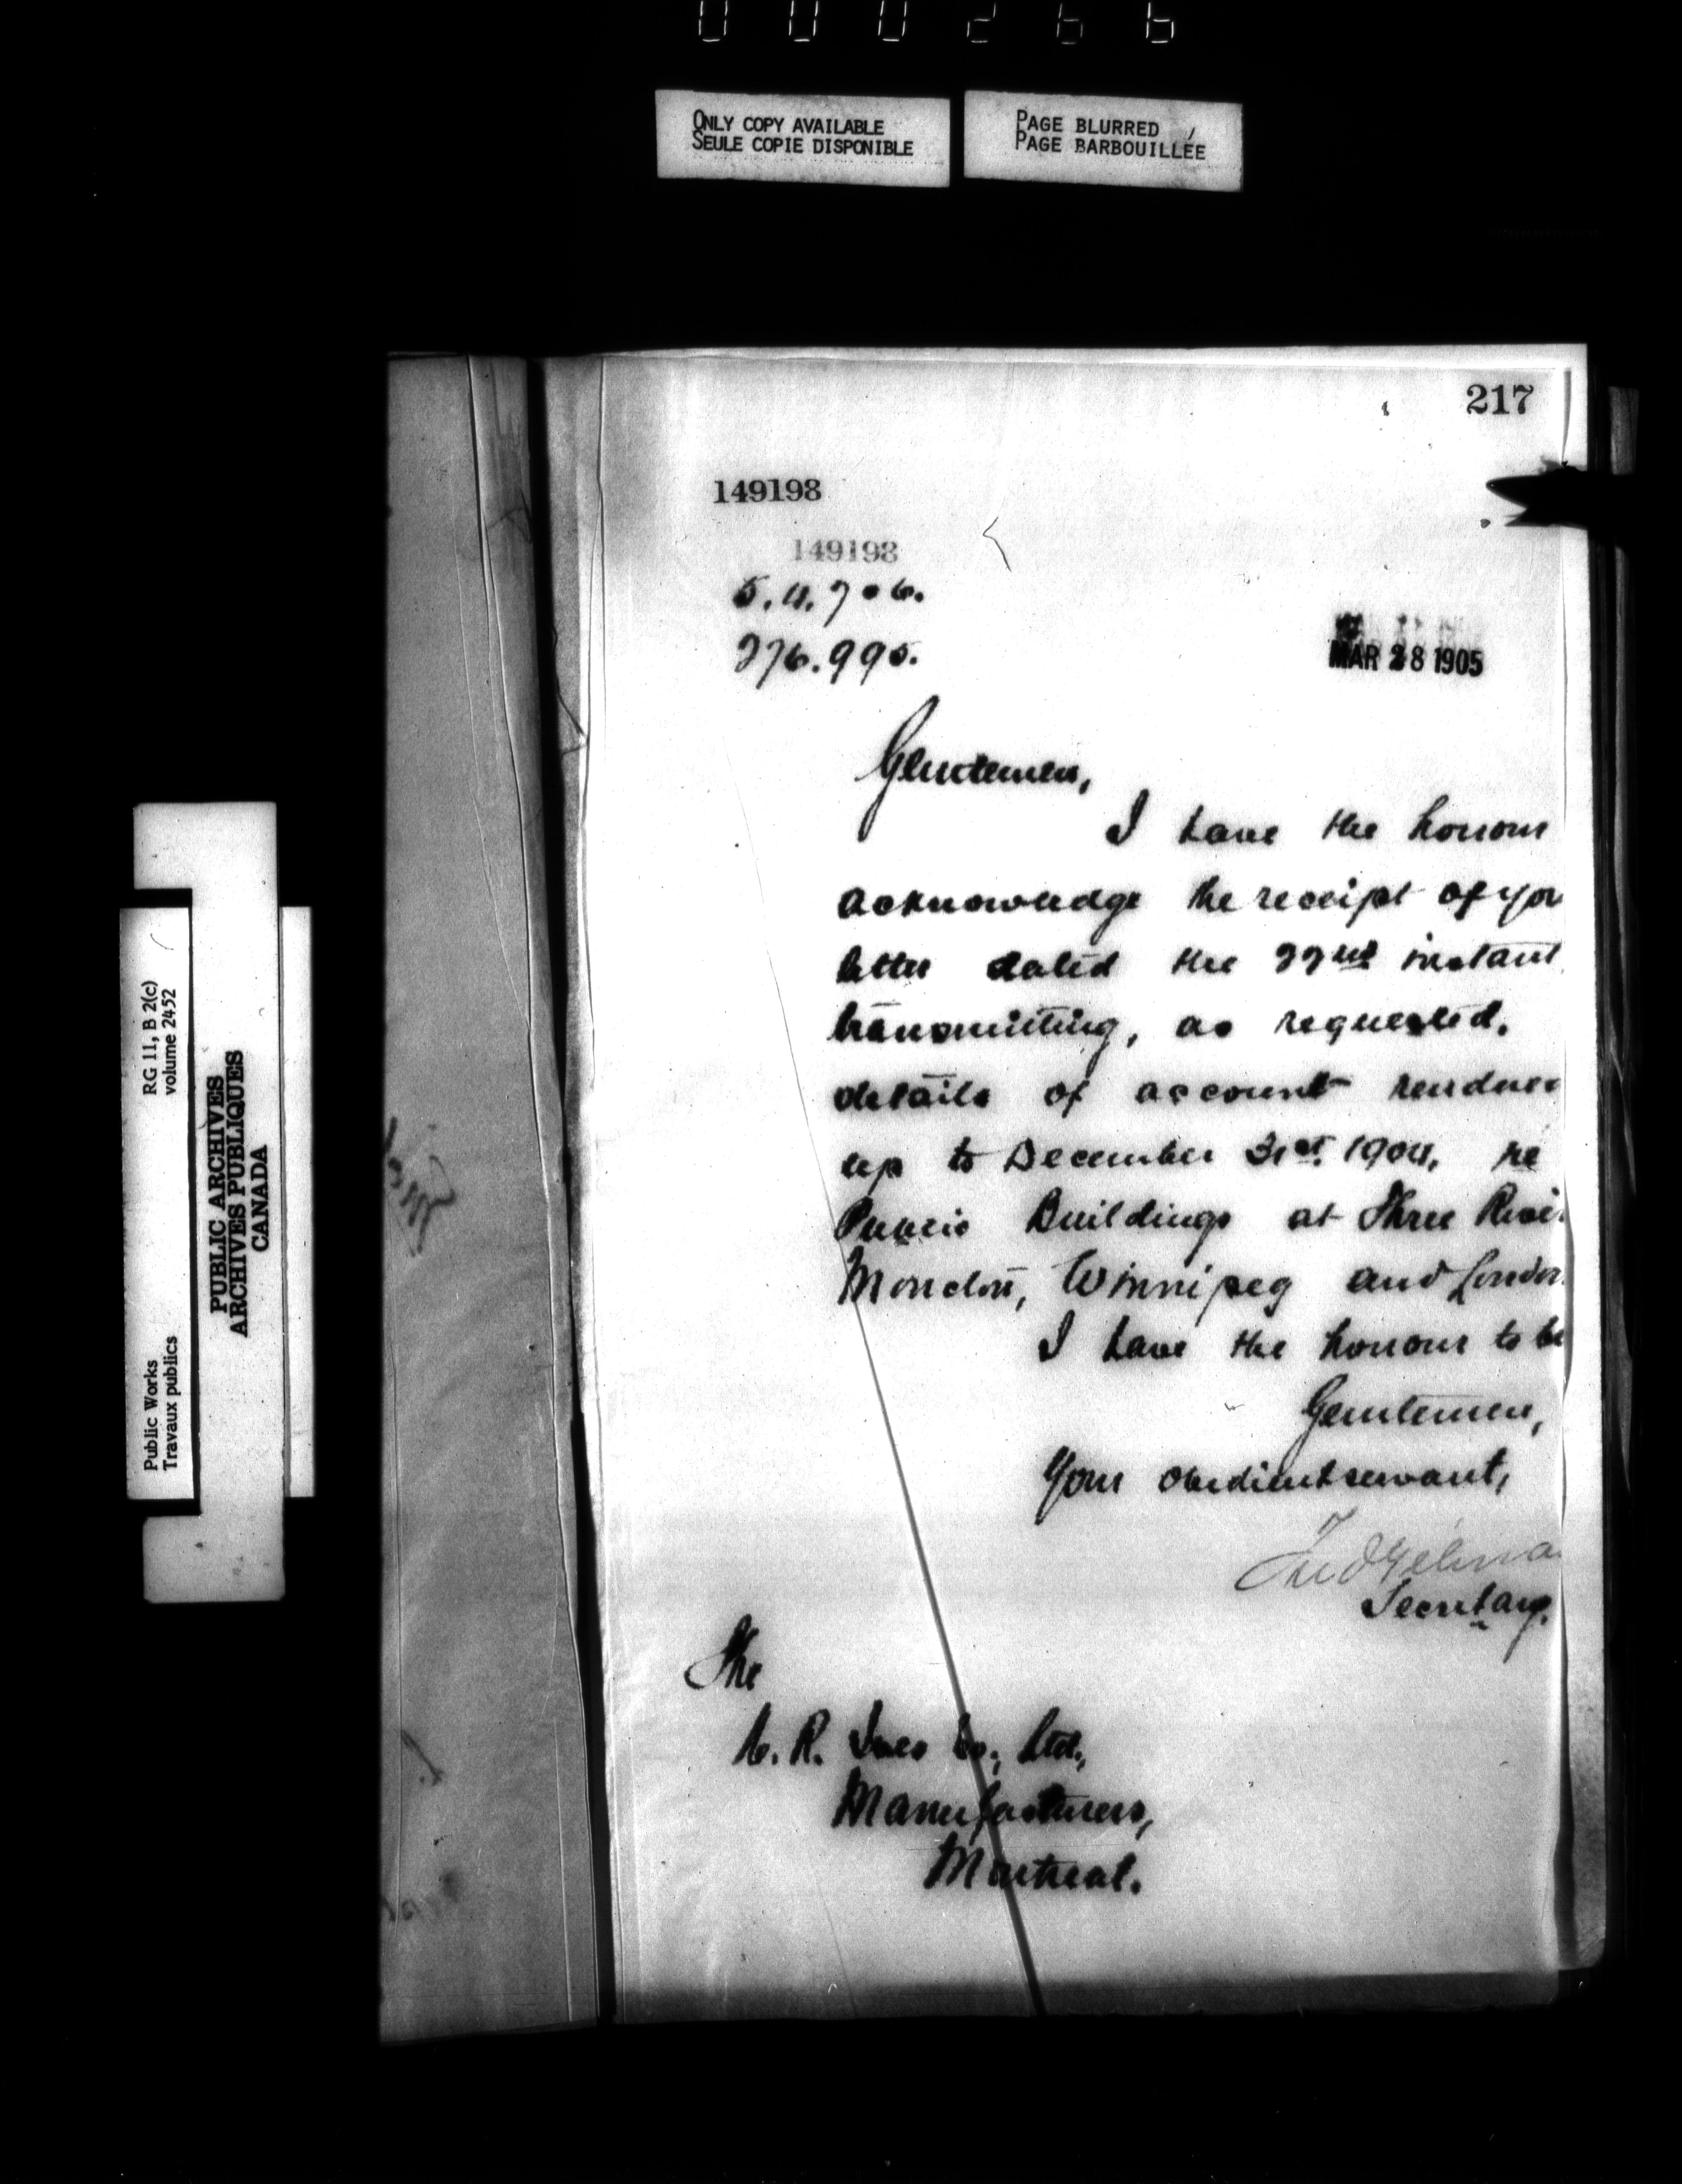 000266
ONLY COPY AVAILABLE
SEULE COPIE DISPONIBLE
PAGE BLURRED
PAGE BARBOUILLÉE
RG 11, B 2(c)
volume 2452
PUBLIC ARCHIVES
ARCHIVES PUBLIQUES
CANADA
Public Works
Travaux publics
217
149198
149198
276.995.
MAR 28 1905
Gentlemen,
I have the honour
acknowledge the receipt of you
letter dated the 22nd instant
transmitting, as requested,
details of account rendered
up to December 31st. 1904, re
Public Buildings at Three River
Moncton, Winnipeg and London
I have the honour to be
Gentlemen,
Your obedient servant,
Fred Gelina
Secretary.
The
R. Ives Co., Ltd.,
Manufacturers,
Montreal.